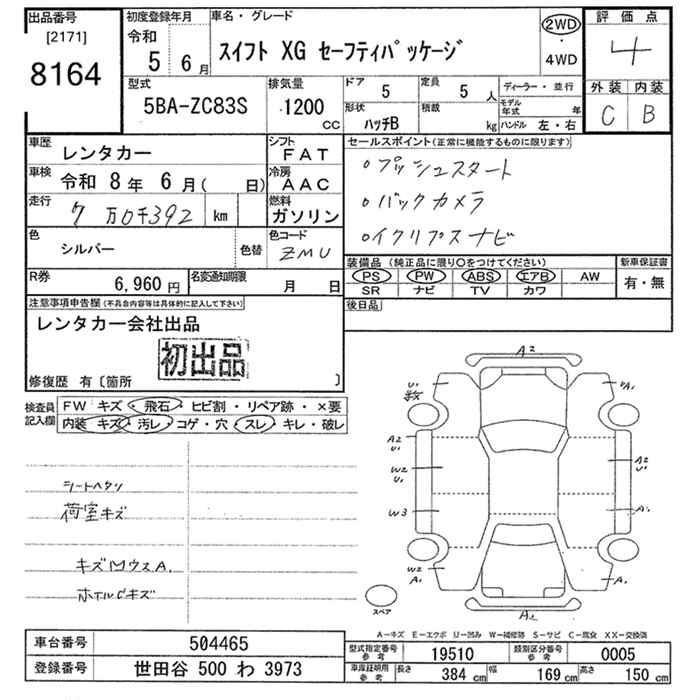 出品番号
[2171]
8164
初度登録年月
令和
5 6月
車名・グレード
スイフト XG セーフティパッケージ
2WD
・
4WD
評価点
4
外装 内装
C B
型式
5BA-ZC83S
排気量
1200
CC
ドア 5
定員 5 人
形状 ハッチB
積載 kg
ディーラー・並行
モデル年式 年
ハンドル 左・右
車歴 レンタカー
車検 令和 8年 6月( 日)
走行 7万0千392 km
色 シルバー 色替
シフト FAT
冷房 AAC
燃料 ガソリン
色コード ZMU
セールスポイント(正常に機能するものに限ります)
○プッシュスタート
○バックカメラ
○イクリプスナビ
装備品(純正品に限り○をつけてください)
PS PW ABS エアB AW
SR ナビ TV カワ
新車保証書
有・無
R券 6,960円
名変通知期限 月 日
後日品
注意事項申告欄(不具合内容等は具体的に記入して下さい)
レンタカー会社出品
初出品
修復歴 有〔箇所 〕
検査員記入欄
FW キズ・飛石・ヒビ割・リペア跡・×要
内装 キズ・汚レ・コゲ・穴・スレ・キレ・破レ
シートヘタリ
荷室キズ
キズMウスA.
ホイルCキズ
A2
U1
A1
A2
U1
W2
U1
W3
W2
A1
A2
U1
A1
A1
A2
スペア
A-キズ E-エクボ U-凹み W-補修跡 S-サビ C-腐食 XX-交換済
車台番号 504465
登録番号 世田谷 500 わ 3973
型式指定番号参考 19510
類別区分番号参考 0005
車庫証明用参考 長さ 384cm 幅 169cm 高さ 150cm